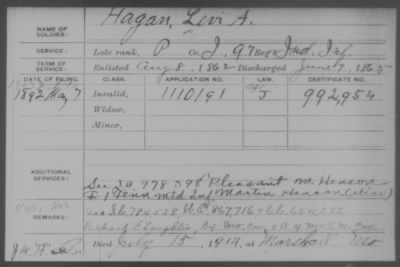 NAME OF SOLDIER: Hagan, Levi A.
SERVICE: Late rank, P Co. I, 97 Reg't Ind. Inf.
TERM OF SERVICE: Enlisted Aug 8, 1862 Discharged June 7, 1865
DATE OF FILING. CLASS. APPLICATION NO. LAW. CERTIFICATE NO.
1892 May 7 Invalid, 1110191 J 992,954
Widow,
Minor,
ADDITIONAL SERVICES: See Ia 778398 Pleasant M. Henson
F 1 Tenn Mtd Inf Martin Henson (alias)
REMARKS: 784838 867,716
Died July 15, 1914, at Marshall Mo